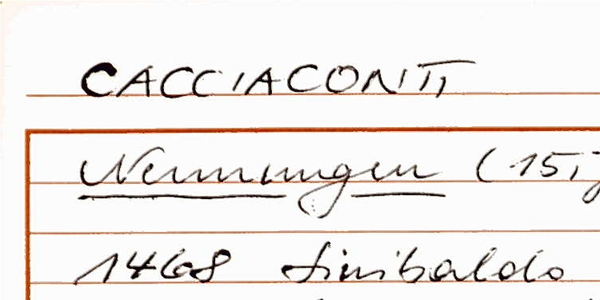 CACCIACONTI
Nennungen (15,
1468 Sinibaldo